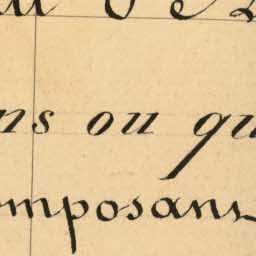 ns ou qu
omposans